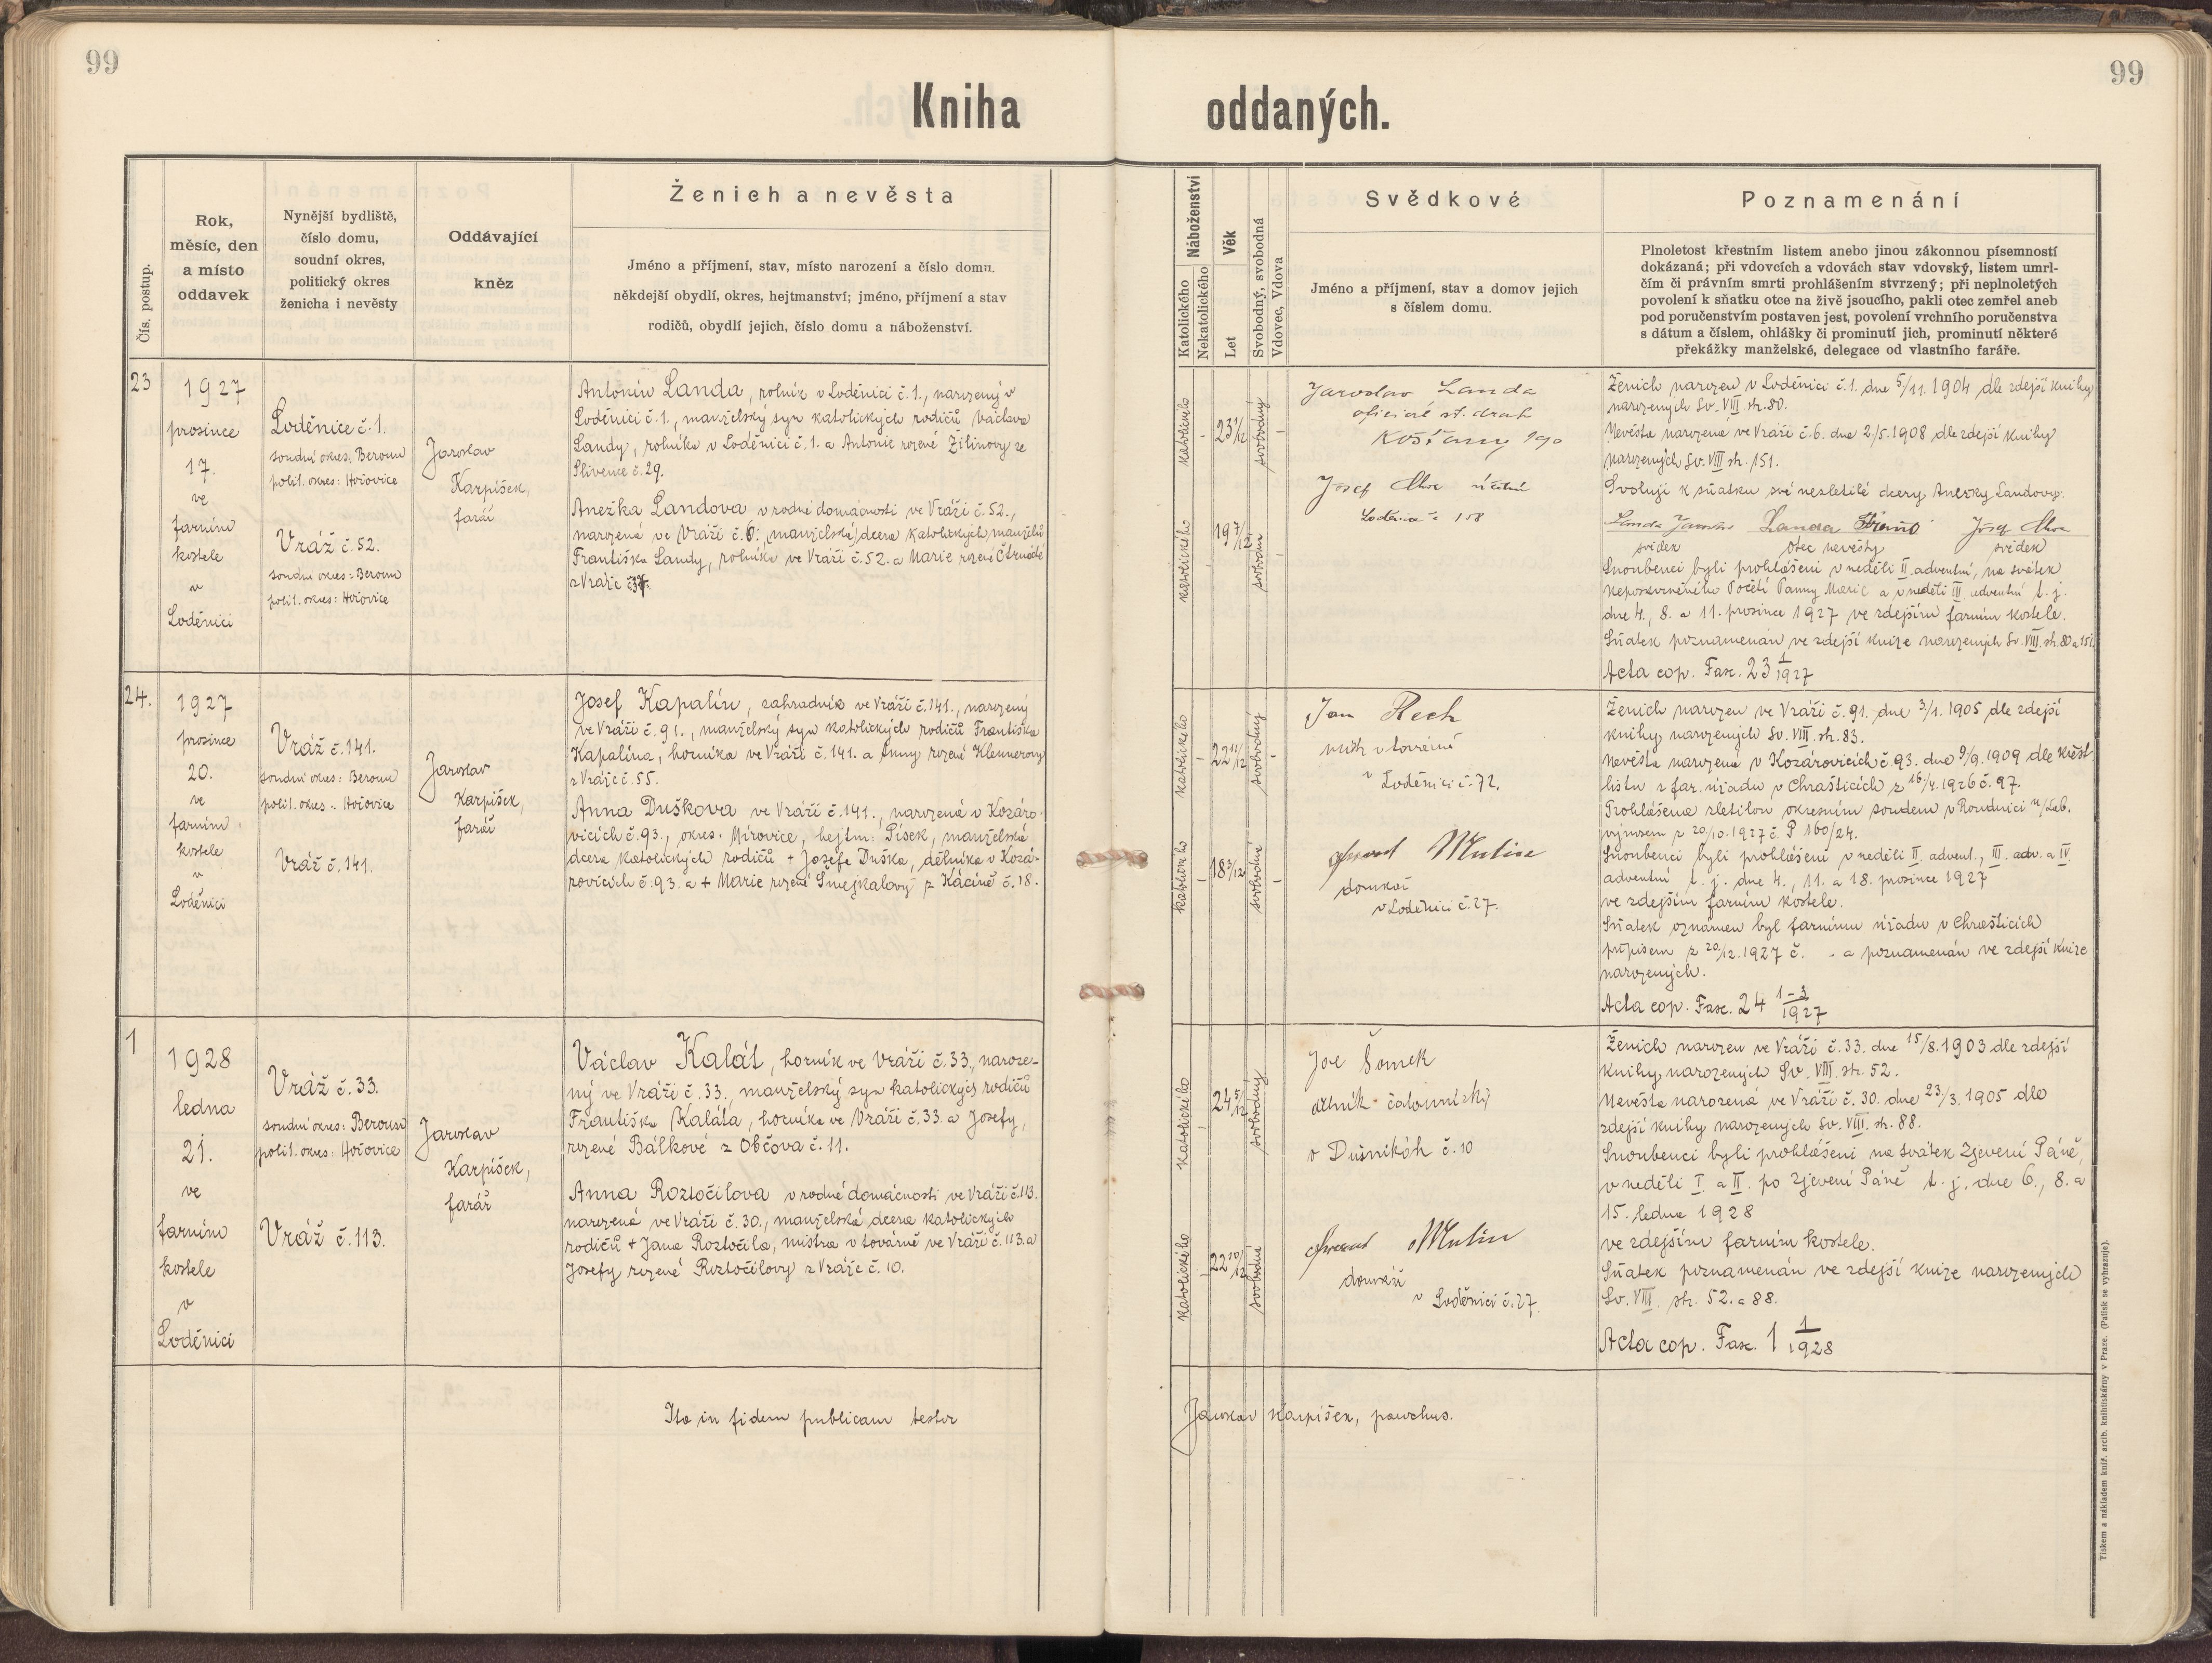 99
99
Kniha
oddaných.
Čís. postup.
Rok,
měsíc, den
a místo
oddavek
Nynější bydliště,
číslo domu,
soudní okres,
politický okres
ženicha i nevěsty
Oddávající
kněz
Ženich a nevěsta
Jméno a příjmení, stav, místo narození a číslo domu.
někdejší obydlí, okres, hejtmanství; jméno, příjmení a stav
rodičů, obydlí jejich, číslo domu a náboženství.
Náboženství
Katolického
Nekatolického
Věk
Let
Svobodný, svobodná
Vdovec, Vdova
Svědkové
Jméno a příjmení, stav a domov jejich
s číslem domu.
Poznamenání
Plnoletost křestním listem anebo jinou zákonnou písemností
dokázaná; při vdovcích a vdovách stav vdovský, listem umrl-
čím či právním smrti prohlášením stvrzený; při neplnoletých
povolení k sňatku otce na živě jsoucího, pakli otec zemřel aneb
pod poručenstvím postaven jest, povolení vrchního poručenstva
s dátum a číslem, ohlášky či prominutí jich, prominutí některé
překážky manželské, delegace od vlastního faráře.
23
1927
prosince
17.
ve
farním
kostele
v
Loděnici
Loděnice č. 1.
soudní okres: Beroun
polit. okres: Hořovice
Vráž č. 52.
soudní okres: Beroun
polit. okres: Hořovice
Jaroslav
Karpíšek,
farář
Antonín Landa, rolník v Loděnici č. 1., narozený v
Loděnici č. 1., manželský syn katolických rodičů Václava
Landy, rolníka v Loděnici č. 1. a Antonie rozené Žilinovy ze
Slivence č. 29.
Anežka Landova v rodné domácnosti ve Vráži č. 52.,
narozená ve Vráži č. 6., manželská dcera katolických manželů
Františka Landy, rolníka ve Vráži č. 52. a Marie rozené Čtrnácté
z Vráže č. 37.
katolického
-
23 1/12
svobodný
-
katolického
-
19 7/12
svobodná
-
Jaroslav Landa
oficiál st. drah
Košťany 190
Josef účetní
Loděnice č 158
Ženich narozen v Loděnici č. 1. dne 5/11. 1904 dle zdejší knihy
narozených Sv. VIII str. 80.
Nevěsta narozená ve Vráži č. 6. dne 2./5. 1908 dle zdejší knihy
narozených Sv. VIII str. 151.
Svoluji k sňatku své nezletilé dcery Anežky Landovy.
Landa Jaroslav Landa Josef
svědek otec nevěsty svědek
Snoubenci byli prohlášeni v neděli II. adventní, na svátek
Neposkvrněného Početí Panny Marie a v neděli III. adventní t. j.
dne 4., 8. a 11. prosince 1927 ve zdejším farním kostele.
Sňatek poznamenán ve zdejší knize narozených Sv. VIII. str. 80 a 151.
Acta cop. Fasc. 23 1/1927
24.
1927
prosince
20.
ve
farním
kostele
v
Loděnici
Vráž č. 141.
soudní okres: Beroun
polit. okres: Hořovice
Vráž č. 141.
Jaroslav
Karpíšek,
farář
Josef Kapalín, zahradník ve Vráži č. 141., narozený
ve Vráži č. 91., manželský syn katolických rodičů Františka
Kapalína, horníka ve Vráži č. 141. a Anny rozené Klennerovy
z Vráže č. 55.
Anna Duškova ve Vráži č. 141., narozená v Kozáro-
vicích č. 93., okres. Mirovice, hejtm: Písek, manželská
dcera katolických rodičů + Josefa Duška, dělníka v Kozá-
rovicích č. 93. a + Marie rozené Smejkalovy z Kácině č. 18.
katolického
-
22 11/12
svobodný
-
katolického
-
18 3/12
svobodná
-
Jan
mistr v továrně
v Loděnici č. 72.
domkář
v Loděnici č. 27.
Ženich narozen ve Vráži č. 91. dne 3/1. 1905 dle zdejší
knihy narozených Sv. VIII. str. 83.
Nevěsta narozená v Kozárovicích č. 93. dne 9/9. 1909 dle křest.
listu z far. úřadu v Chrašticích z 16./4. 1926 č. 97.
Prohlášena zletilou okresním soudem v Roudnici n/Lab.
výnosem z 20/10. 1927 č. P 160/24.
Snoubenci byli prohlášeni v neděli II. advent., III. adv. a IV.
adventní t. j. dne 4., 11. a 18. prosince 1927
ve zdejším farním kostele.
Sňatek oznámen byl farnímu úřadu v Chrašticích
přípisem z 20/12. 1927 č. - a poznamenán ve zdejší knize
narozených.
Acta cop. Fasc. 24 1-3/1927
1
1928
ledna
21.
ve
farním
kostele
v
Loděnici
Vráž č. 33.
soudní okres: Beroun
polit. okres: Hořovice
Vráž č. 113.
Jaroslav
Karpíšek,
farář
Václav Kalát, horník ve Vráži č. 33., naroze-
ný ve Vráži č. 33., manželský syn katolických rodičů
Františka Kaláta, horníka ve Vráži č. 33. a Josefy,
rozené Bálkové z Občova č. 11.
Anna Roztočilova v rodné domácnosti ve Vráži č. 113.
narozená ve Vráži č. 30., manželská dcera katolických
rodičů + Jana Roztočila, mistra v továrně ve Vráži č. 113. a
Josefy rozené Roztočilovy z Vráže č. 10.
katolického
-
24 5/12
svobodný
katolického
-
22 10/12
svobodná
Jos Šimek
dělník čalounický
v Dušnikách č. 10
domkář
v Loděnici č. 27.
Ženich narozen ve Vráži č. 33. dne 15/8. 1903 dle zdejší
knihy narozených Sv. VIII. str. 52.
Nevěsta narozená ve Vráži č. 30. dne 23/3. 1905 dle
zdejší knihy narozených Sv. VIII. str. 88.
Snoubenci byli prohlášeni na svátek Zjevení Páně,
v neděli I. a II. po Zjevení Páně t. j. dne 6., 8. a
15. ledna 1928
ve zdejším farním kostele.
Sňatek poznamenán ve zdejší knize narozených
Sv. VIII. str. 52. a 88.
Acta cop. Fasc. 1 1/1928
Ita in fidem publicam testor
Jaroslav Karpíšek, parochus.
Tiskem a nákladem kníž. arcib. knihtiskárny v Praze. (Patisk se vyhrazuje).